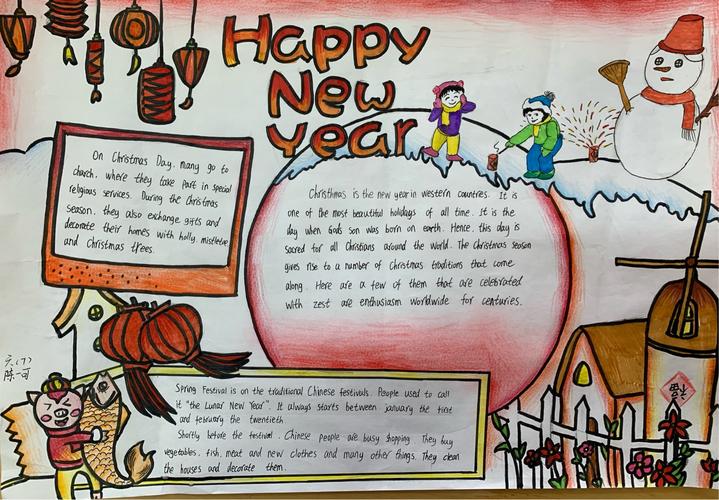 Happy
New
Year
On Christmas Day, many go to
church, where they take part in special
religious services. During the Christmas
season, they also exchange gifts and
decorate their homes with holly, mistletoe
and Christmas trees.
Christhmas is the new year in western countres. It is
one of the most beautiful holidays of all time. It is the
day when Gods son was born on earth. Hence, this day is
sacred for all Chistians around the world. The Christmas season
gives rise to a number of Christmas traditions that come
along. Here are a few of them that are celebrated
with zest are enthusiasm worldwide for centuries.
六(7)
陈一可
Spring Festival is on the traditional Chinese festivals. People used to call
it "the Lunar New Year". It always starts between january the first
and february the twentieth
Shortly before the festival. Chinese people are busy shopping They buy
vegetables, fish, meat and new clothes and many other things. They clean
the houses and decorate them.
福